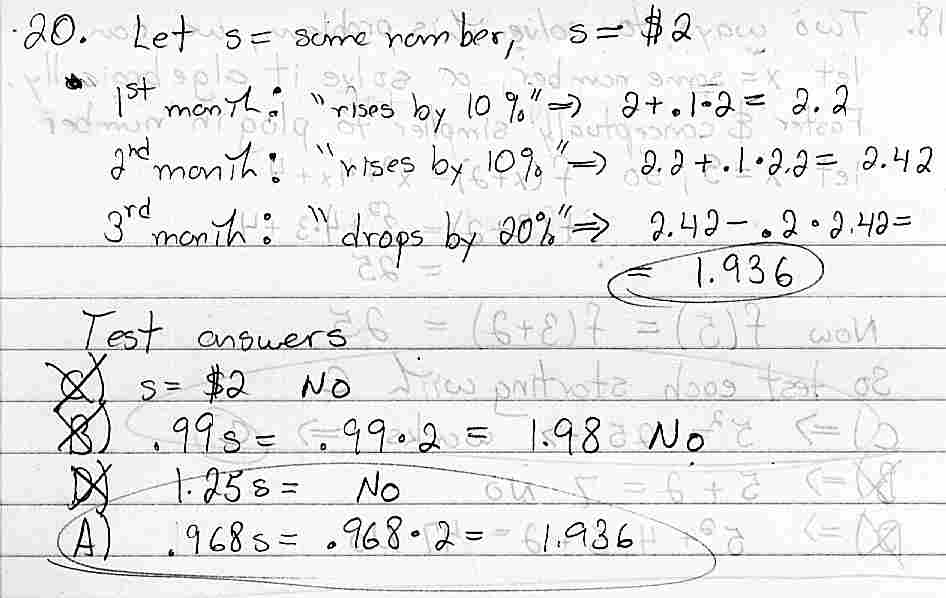 20. Let s = some number, s = $2
1st month: "rises by 10%" ⇒ 2 + .1•2 = 2.2
2nd month: "rises by 10%" ⇒ 2.2 + .1•2.2 = 2.42
3rd month: "drops by 20%" ⇒ 2.42 - .2•2.42 =
= 1.936
Test answers
C) s = $2 No
B) .99s = .99•2 = 1.98 No
D) 1.25s = No
A) .968s = .968•2 = 1.936